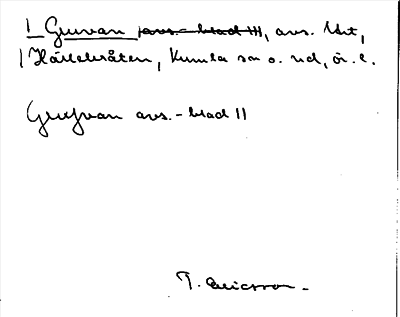 1 Gruvan avs. - blad III, avs. Urt,
Härlebråten, Kumla sn o. hd, ör. l.
Gruvan avs. - blad II
T. Ericsson